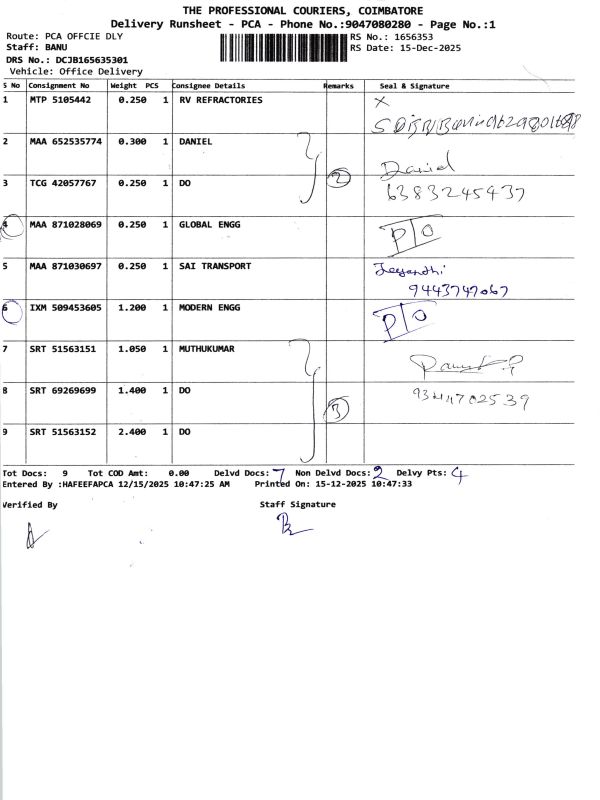 THE PROFESSIONAL COURIERS, COIMBATORE
Delivery Runsheet - PCA - Phone No.:9047080280 - Page No.:1
Route: PCA OFFCIE DLY
RS No.: 1656353
Staff: BANU
RS Date: 15-Dec-2025
DRS No.: DCJB165635301
Vehicle: Office Delivery
S No Consignment No Weight PCS Consignee Details Remarks Seal & Signature
1 MTP 5105442 0.250 1 RV REFRACTORIES X
2 MAA 652535774 0.300 1 DANIEL Daniel
3 TCG 42057767 0.250 1 DO 2 6383245937
4 MAA 871028069 0.250 1 GLOBAL ENGG P/O
5 MAA 871030697 0.250 1 SAI TRANSPORT Jeyandhi
9443747067
6 IXM 509453605 1.200 1 MODERN ENGG P/O
7 SRT 51563151 1.050 1 MUTHUKUMAR
8 SRT 69269699 1.400 1 DO 3 9344702539
9 SRT 51563152 2.400 1 DO
Tot Docs: 9 Tot COD Amt: 0.00 Delvd Docs: 7 Non Delvd Docs: 2 Delvy Pts: 4
Entered By :HAFEEFAPCA 12/15/2025 10:47:25 AM Printed On: 15-12-2025 10:47:33
Verified By Staff Signature